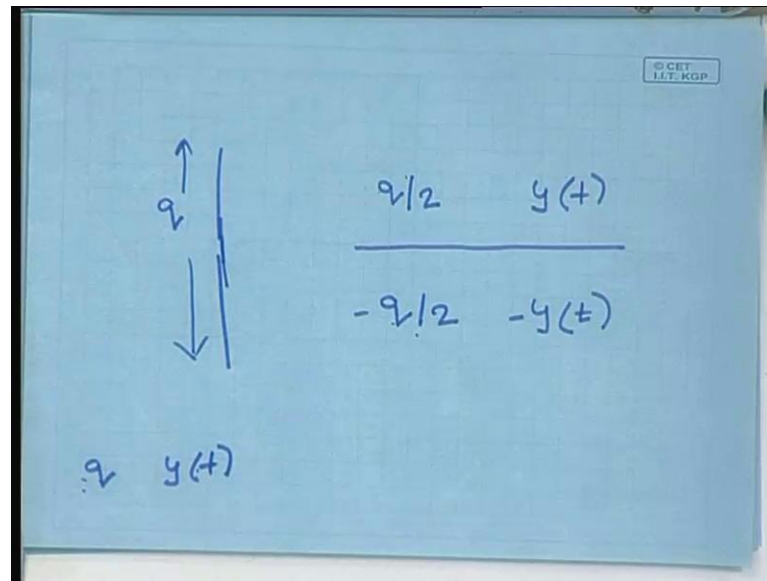 © CET
I.I.T. KGP
q
q/2 y(t)
-q/2 -y(t)
q y(t)